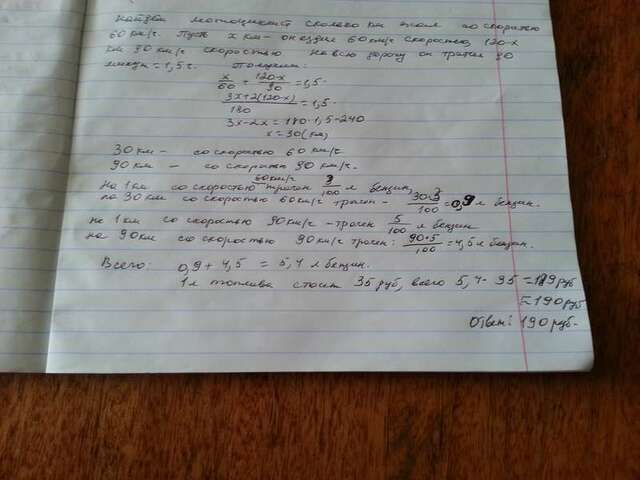 Найдём мотоциклист сколько км ехал со скоростью
60 км/г. Пусть x км - он ездил 60 км/г скоростью, 120-x
км 90 км/г скоростью на всю дорогу он тратил 90
минут = 1,5 г. Получим:
x/60 + 120-x/90 = 1,5.
3x+2(120-x)/180 = 1,5.
3x-2x = 180·1,5-240
x = 30 (км)
30 км - со скоростью 60 км/г
90 км - со скоростью 90 км/г.
60 км/г
на 1 км со скоростью трачен 3/100 л бензин,
по 30 км со скоростью 60 км/г трачен - 30·3/100 = 0,9 л бензин.
на 1 км со скоростью 90 км/г - трачен 5/100 л бензин
на 90 км со скоростью 90 км/г трачен: 90·5/100 = 4,5 л бензин.
Всего: 0,9 + 4,5 = 5,4 л бензин.
1 л топлива стоит 35 руб, всего 5,4 · 35 = 189 руб
≈ 190 руб
Ответ: 190 руб.